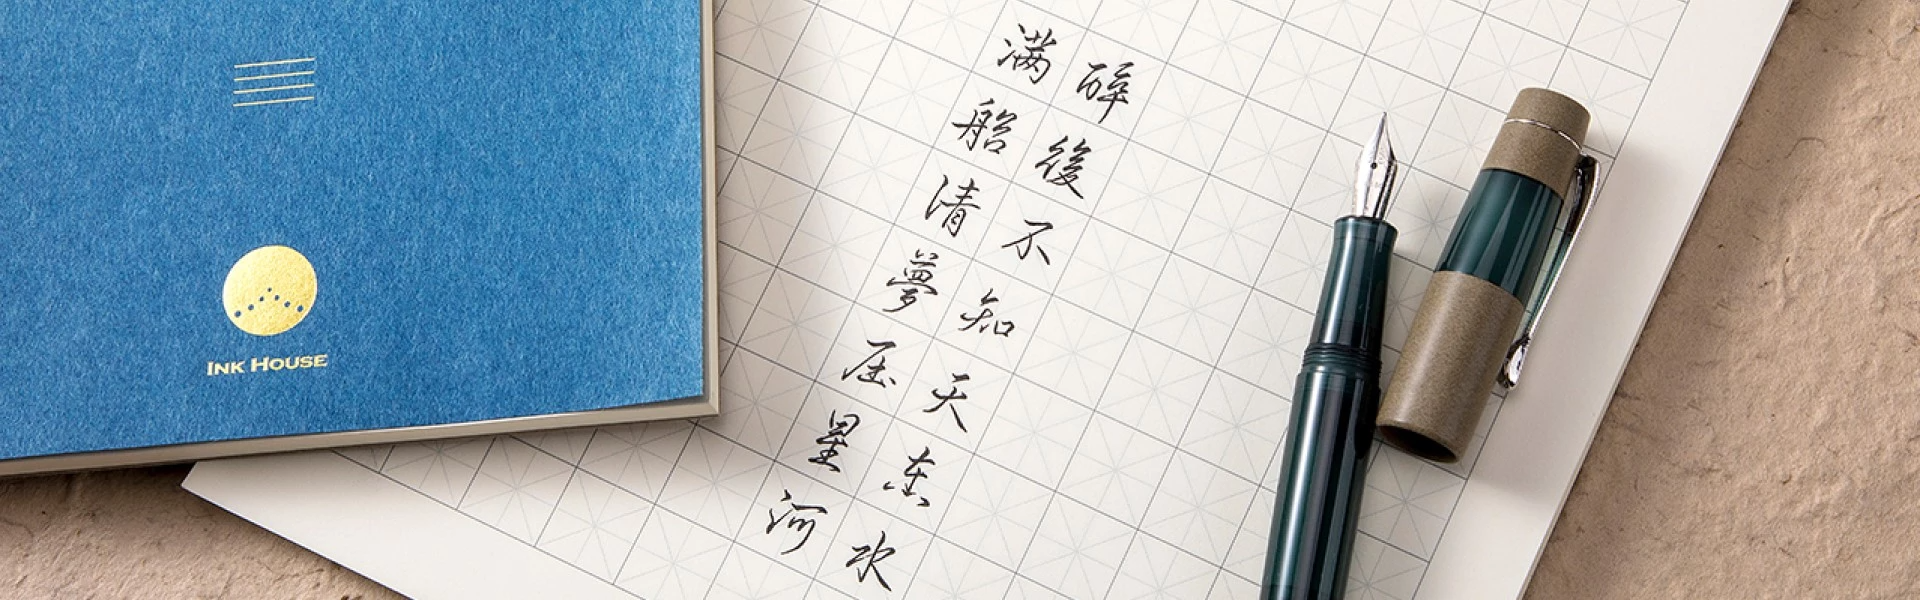 醉後不知天在水
满船清夢压星河
INK HOUSE